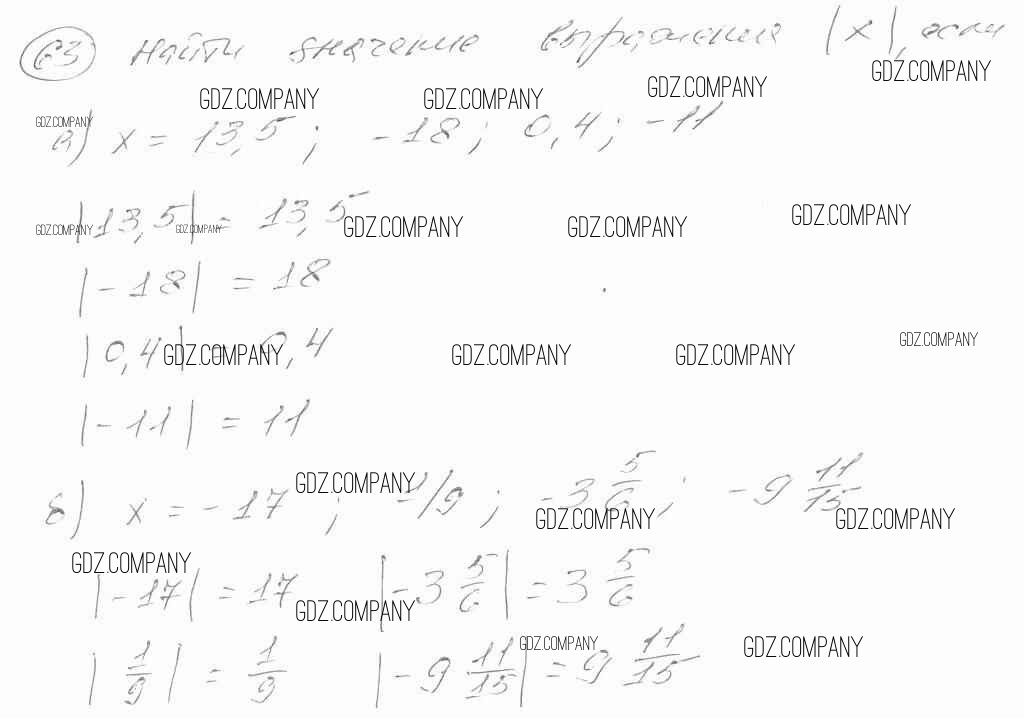 63 Найти значение выражения |x|, если
GDZ.COMPANY GDZ.COMPANY GDZ.COMPANY GDZ.COMPANY
GDZ.COMPANY
а) x = 13,5 ; -18 ; 0,4 ; -11
|13,5| = 13,5
GDZ.COMPANY GDZ.COMPANY GDZ.COMPANY GDZ.COMPANY GDZ.COMPANY
|-18| = 18
|0,4| = 0,4
GDZ.COMPANY GDZ.COMPANY GDZ.COMPANY GDZ.COMPANY
|-11| = 11
GDZ.COMPANY
б) x = -17 ; 1/9 ; -3 5/6 ; -9 11/15
GDZ.COMPANY GDZ.COMPANY
GDZ.COMPANY
|-17| = 17 |-3 5/6| = 3 5/6
GDZ.COMPANY
GDZ.COMPANY GDZ.COMPANY
|1/9| = 1/9 |-9 11/15| = 9 11/15